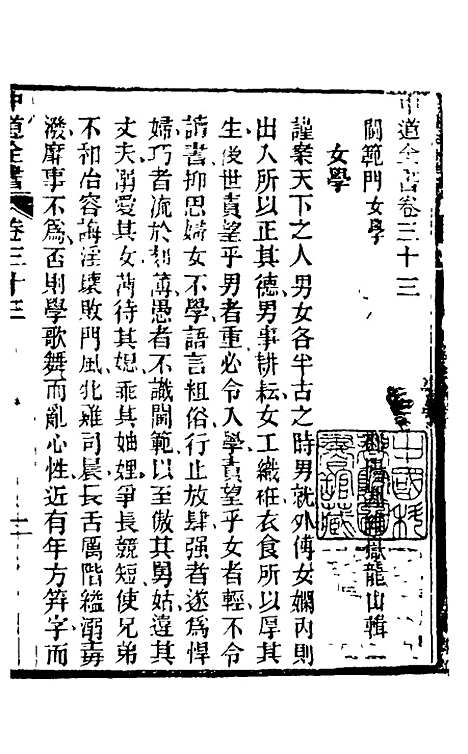 中道全書卷三十三
閫範門女學
謝維嶽龍山輯
女學
謹案天下之人男女各半古之時男就外傅女嫻內則
出入所以正其德男事耕耘女工織紝衣食所以厚其
生後世責望乎男者重必令入學責望乎女者輕不令
讀書抑思婦女不學語言粗俗行止放肆强者遂爲悍
婦巧者流於刻薄愚者不識閫範以至傲其舅姑違其
丈夫溺愛其女苛待其媳乖其妯娌爭長競短使兄弟
不和冶容誨淫壞敗門風北雞司晨長舌厲階縊溺毒
潑靡事不爲否則學歌舞而亂心性近有年方笄字而
中道全書
卷三十三
一